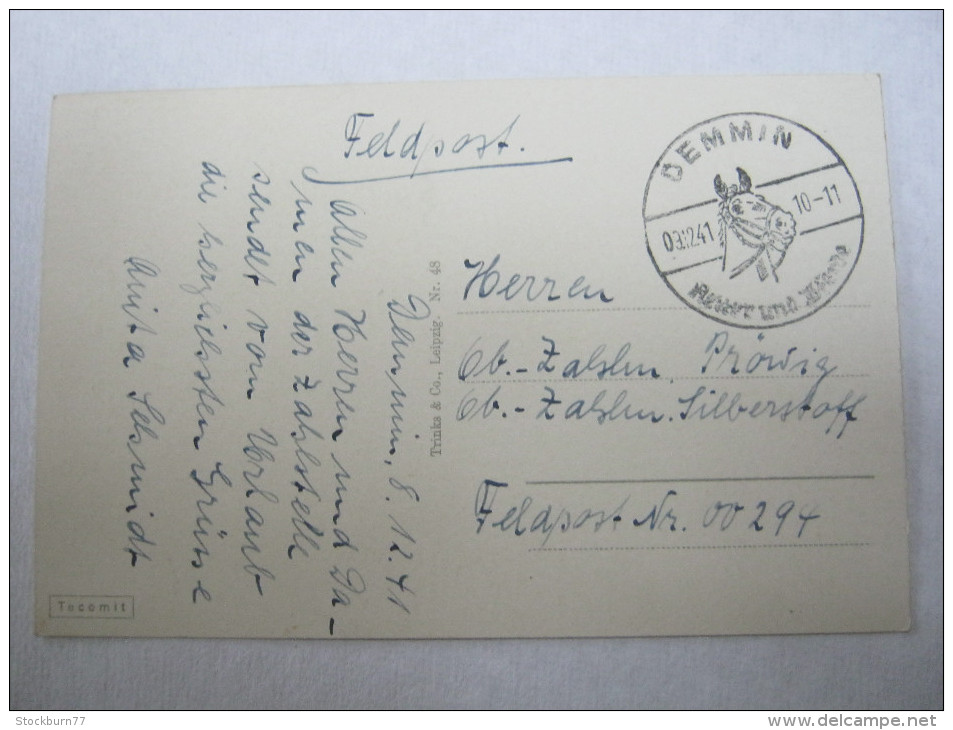 Feldpost.
DEMMIN
09.12.41
10-11
und
Demmin, 8. 12. 41
Allen Herren und Da-
men der Zahlstelle
sendet vom Urlaub
die herzlichsten Grüsse
Anita Schmidt
Trinks & Co., Leipzig. Nr. 48
Herren
Ob.-Zahlm. Pröwig
Ob.-Zahlm. Silberstoff
Feldpost Nr. 00294
Tocomit
Stockburn77
www.delcampe.net